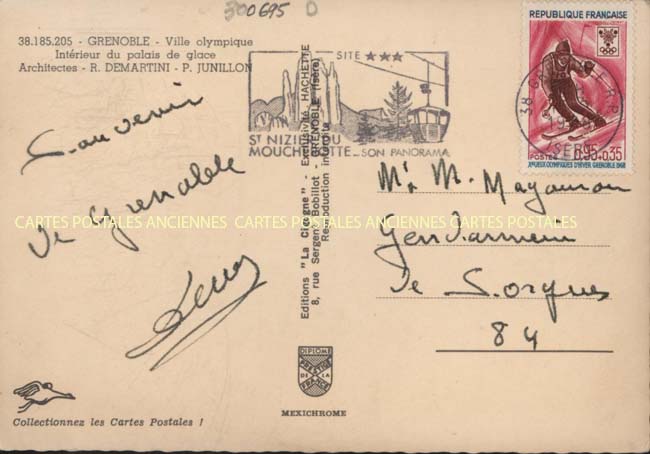 300695 D
38.185.205 - GRENOBLE - Ville olympique
Intérieur du palais de glace
Architectes - R. DEMARTINI - P. JUNILLON
SITE ★★★
ST NIZIER DU
MOUCHEROTTE... SON PANORAMA
RÉPUBLIQUE FRANÇAISE
38 GRENOBLE R.P.
ISERE
POSTES 0,95+0,35
XES JEUX OLYMPIQUES D'HIVER. GRENOBLE 1968
Souvenir
de Grenoble
Editions "La Cigogne" - Exclusivité HACHETTE
8, rue Sergent Bobillot - GRENOBLE (Isère)
Reproduction interdite
Mr M.
Gendarmerie
de Sorgues
84
CARTES POSTALES ANCIENNES CARTES POSTALES ANCIENNES CARTES POSTALES
DIPLOME
PRESTIGE
DE LA
FRANCE
MEXICHROME
Collectionnez les Cartes Postales !